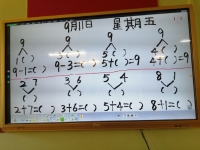 9月11日 星期五
9 9 9 9
1 ( ) 3 ( ) 5 ( ) 4 ( )
9-1=( ) 9-3=( ) 5+( )=9 4+( )=9
2 7 3 6 5 4 8 1
( ) ( ) ( ) ( )
2+7=( ) 3+6=( ) 5+4=( ) 8+1=( )